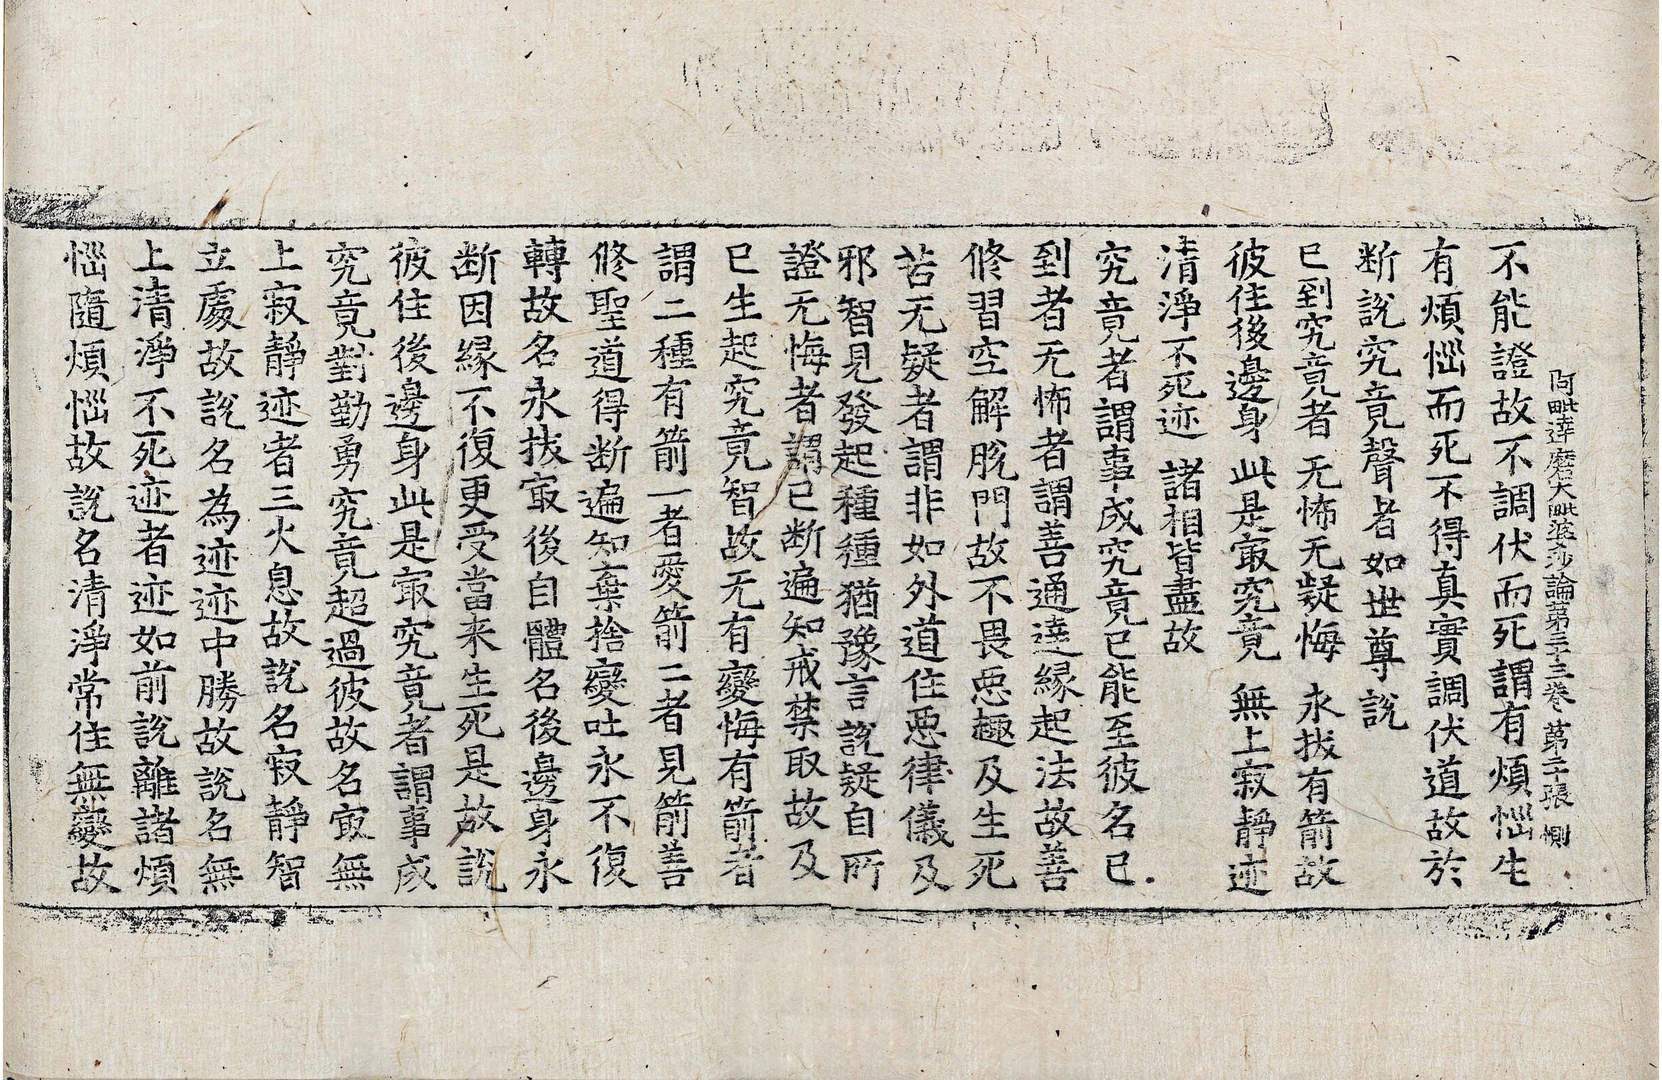 阿毗達磨大毗婆沙論第三十三卷 第二十張 惻
不能證故不調伏而死謂有煩惱生
有煩惱而死不得真實調伏道故於
斷說究竟聲者如世尊說
已到究竟者 无怖无疑悔 永拔有箭故
彼住後邊身 此是㝡究竟 無上寂靜迹
清淨不死迹 諸相皆盡故
究竟者謂事成究竟已能至彼名已
到者无怖者謂善通達緣起法故善
修習空解脫門故不畏惡趣及生死
苦无疑者謂非如外道住惡律儀及
邪智見發起種種猶豫言說疑自所
證无悔者謂已斷遍知戒禁取故及
已生起究竟智故无有變悔有箭者
謂二種有箭一者愛箭二者見箭善
修聖道得斷遍知棄捨變吐永不復
轉故名永拔㝡後自體名後邊身永
斷因緣不復更受當来生死是故說
彼住後邊身此是㝡究竟者謂事成
究竟對勤勇究竟超過彼故名㝡無
上寂靜迹者三火息故說名寂靜智
立處故說名為迹迹中勝故說名無
上清淨不死迹者迹如前說離諸煩
惱隨煩惱故說名清淨常住無變故